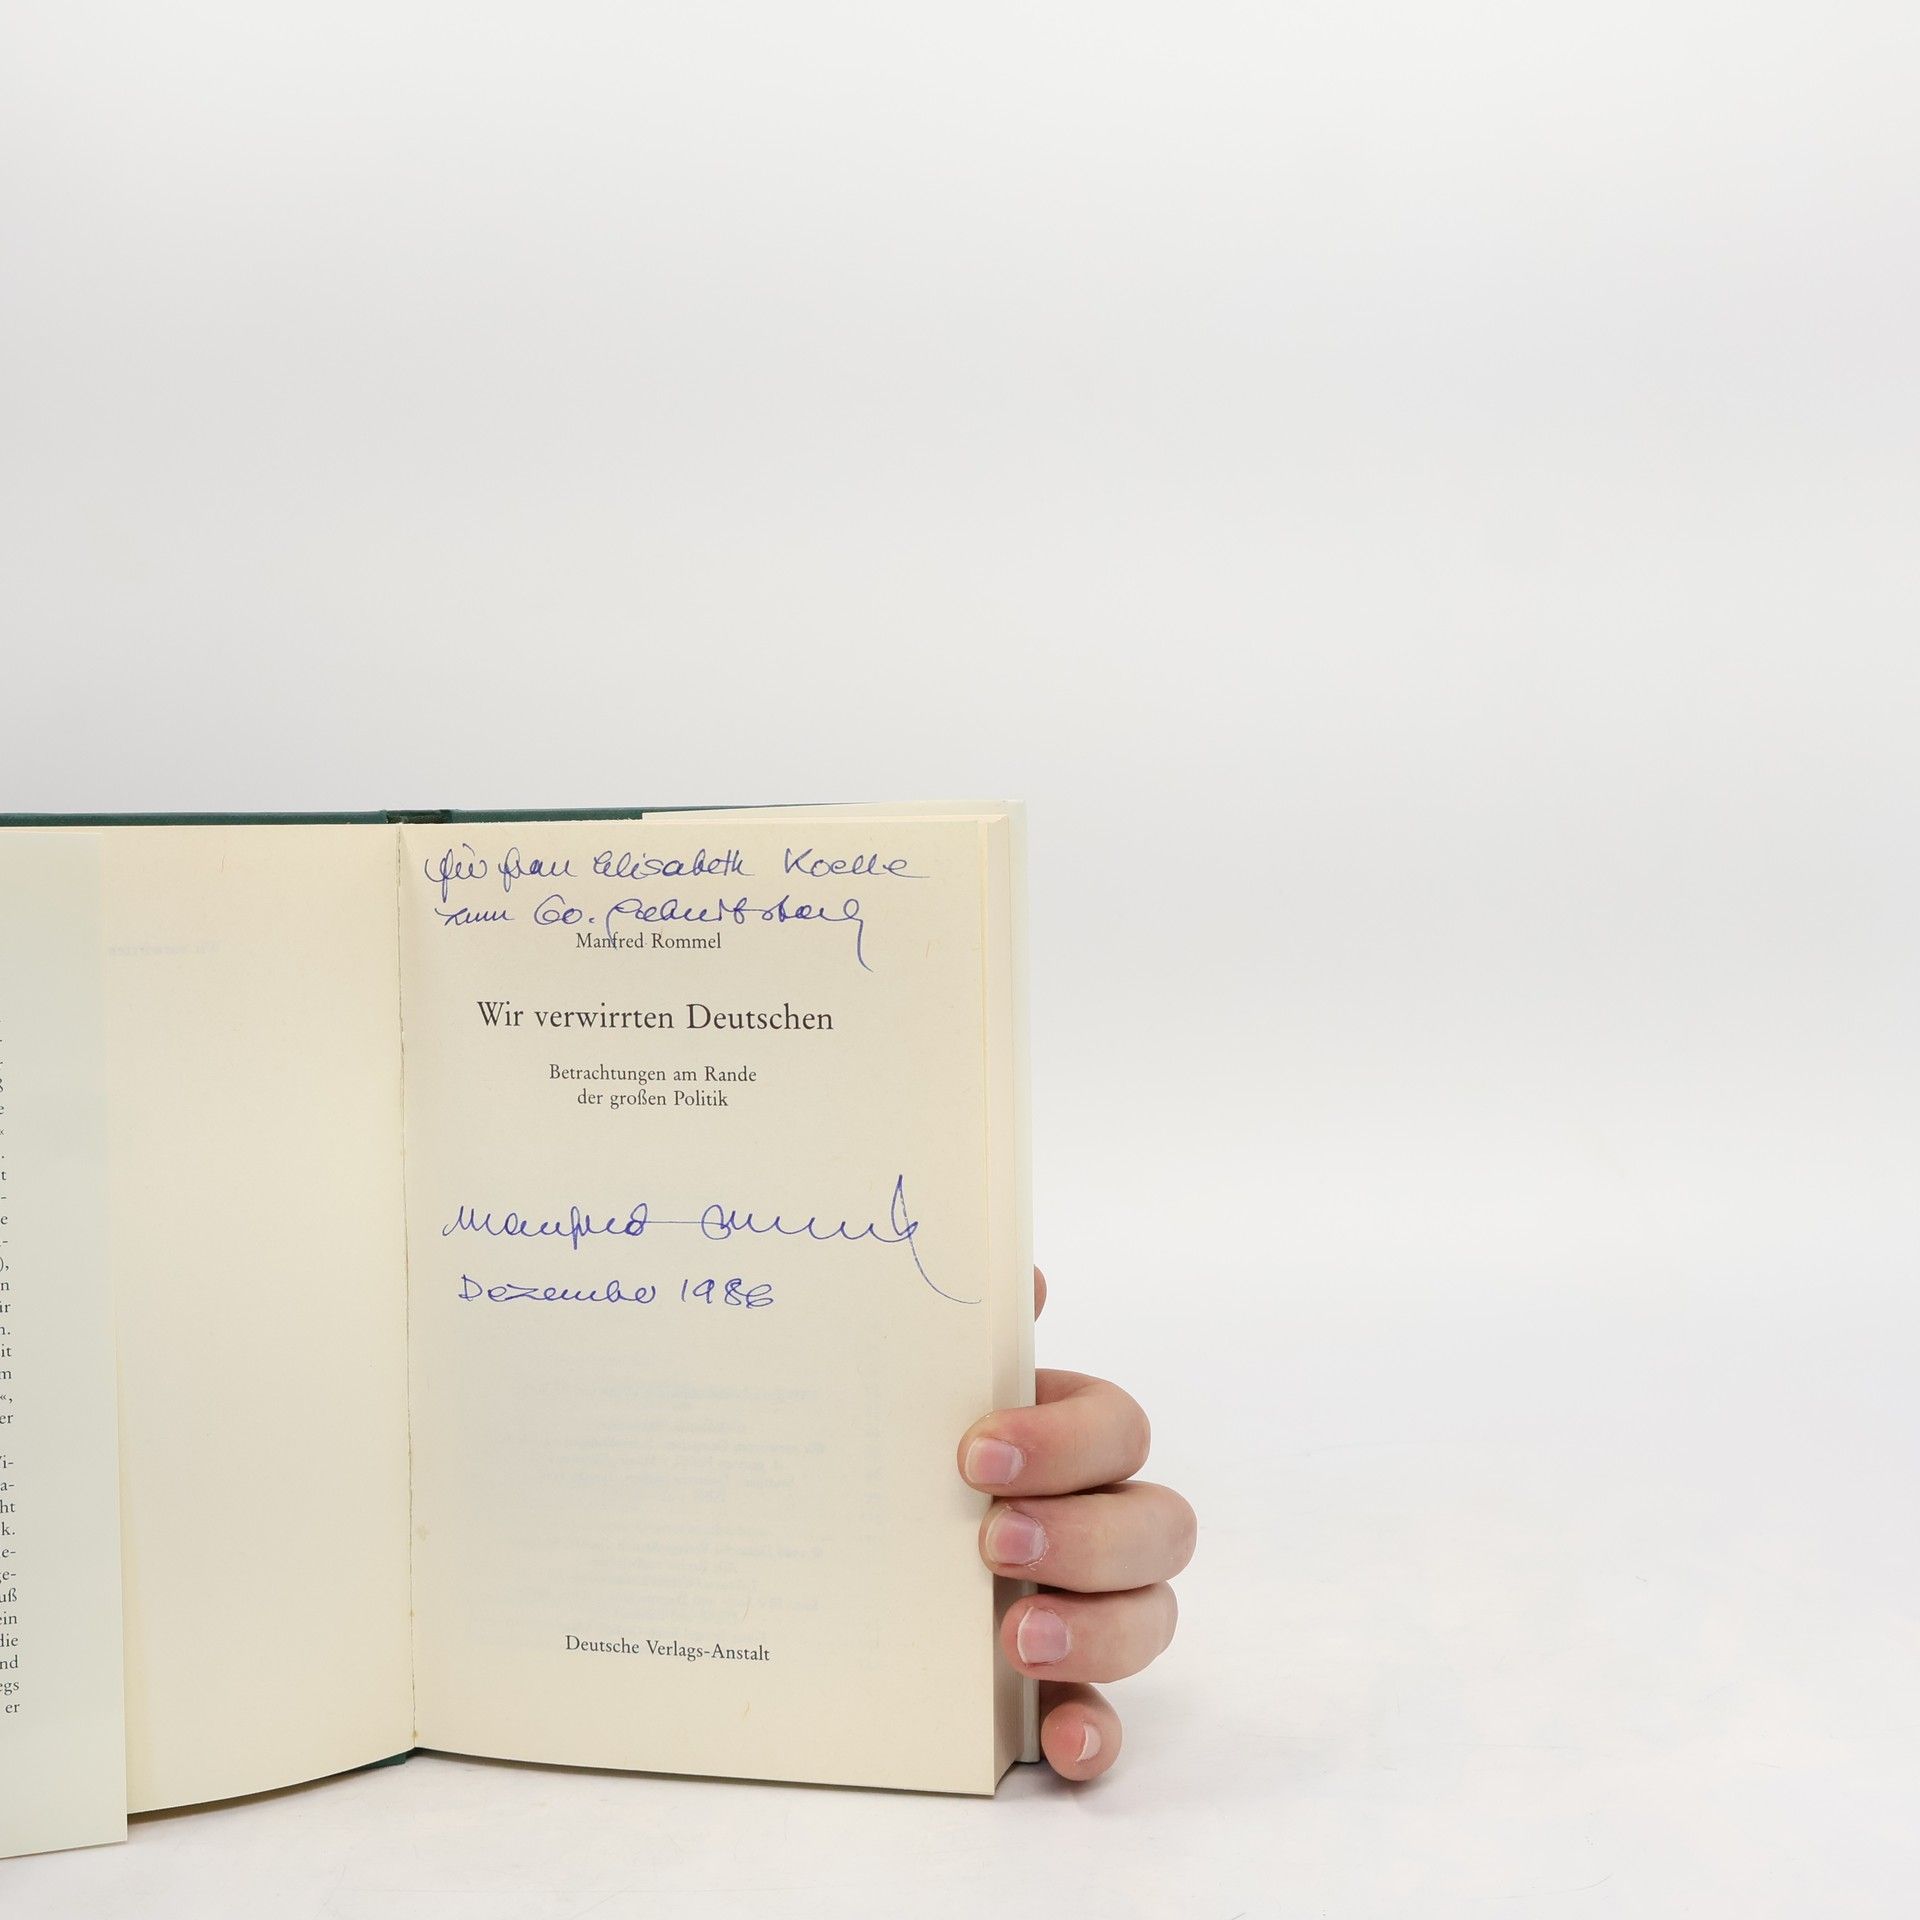 Für Frau Elisabeth Koelle
zum 60. Geburtstag
Manfred Rommel
Wir verwirrten Deutschen
Betrachtungen am Rande
der großen Politik
Manfred Rommel
Dezember 1986
Deutsche Verlags-Anstalt
ß
e
«
.
t
-
e
-
),
n
ir
n.
it
m
«,
er
i-
a-
ht
k.
e-
ge-
uß
ein
die
nd
egs
er